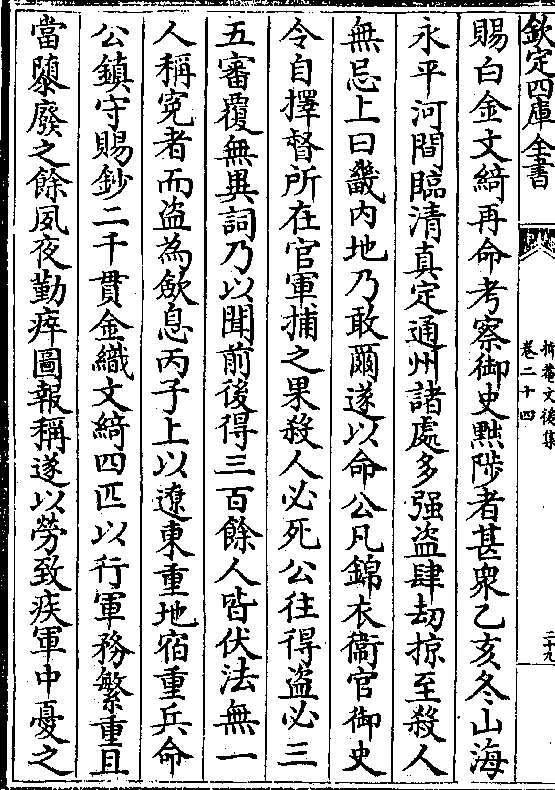 欽定四庫全書
抑菴文後集
卷二十四
二十九
賜白金文綺再命考察御史黜陟者甚衆乙亥冬山海
永平河間臨清真定通州諸處多强盗肆刼掠至殺人
無忌上曰畿内地乃敢爾遂以命公凡錦衣衛官御史
令自擇督所在官軍捕之果殺人必死公往得盗必三
五審覆無異詞乃以聞前後得三百餘人皆伏法無一
人稱寃者而盗為歛息丙子上以遼東重地宿重兵命
公鎮守賜鈔二千貫金織文綺四匹以行軍務繁重且
當隳廢之餘夙夜勤瘁圖報稱遂以勞致疾軍中憂之